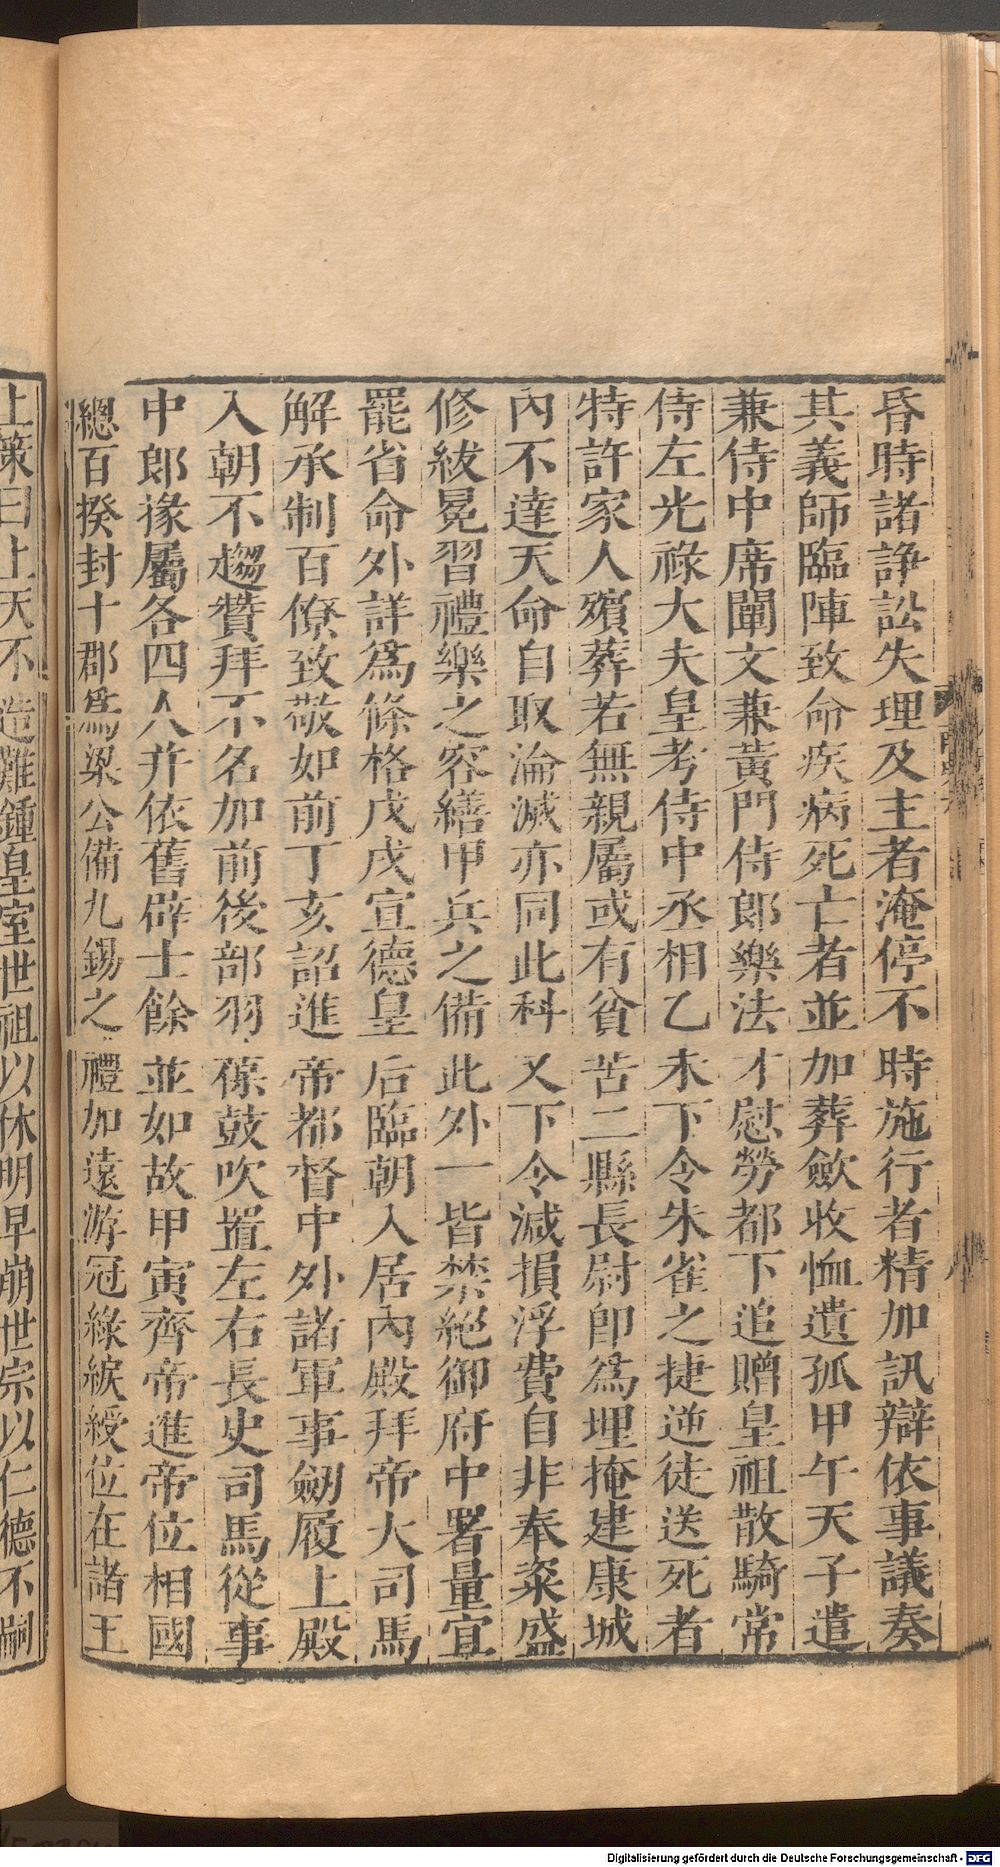 昏時諸諍訟失理及主者淹停不時施行者精加訊辯依事議奏
其義師臨陣致命疾病死亡者並加葬斂收恤遺孤甲午天子遣
兼侍中席闡文兼黃門侍郎樂法才慰勞都下追贈皇祖散騎常
侍左光祿大夫皇考侍中丞相乙未下令朱雀之捷逆徒送死者
特許家人殯葬若無親屬或有貧苦二縣長尉卽爲埋掩建康城
內不達天命自取淪滅亦同此科又下令減損浮費自非奉粢盛
修紱冕習禮樂之容繕甲兵之備此外一皆禁絕御府中署量宜
罷省命外詳爲條格戊戌宣德皇后臨朝入居內殿拜帝大司馬
解承制百僚致敬如前丁亥詔進帝都督中外諸軍事劒履上殿
入朝不趨贊拜不名加前後部羽葆鼓吹置左右長史司馬從事
中郎掾屬各四人幷依舊辟士餘並如故甲寅齊帝進帝位相國
總百揆封十郡爲梁公備九錫之禮加遠游冠綠綟綬位在諸王
上策曰上天不造難鍾皇室世祖以休明早崩世宗以仁德不嗣
Digitalisierung gefördert durch die Deutsche Forschungsgemeinschaft - DFG